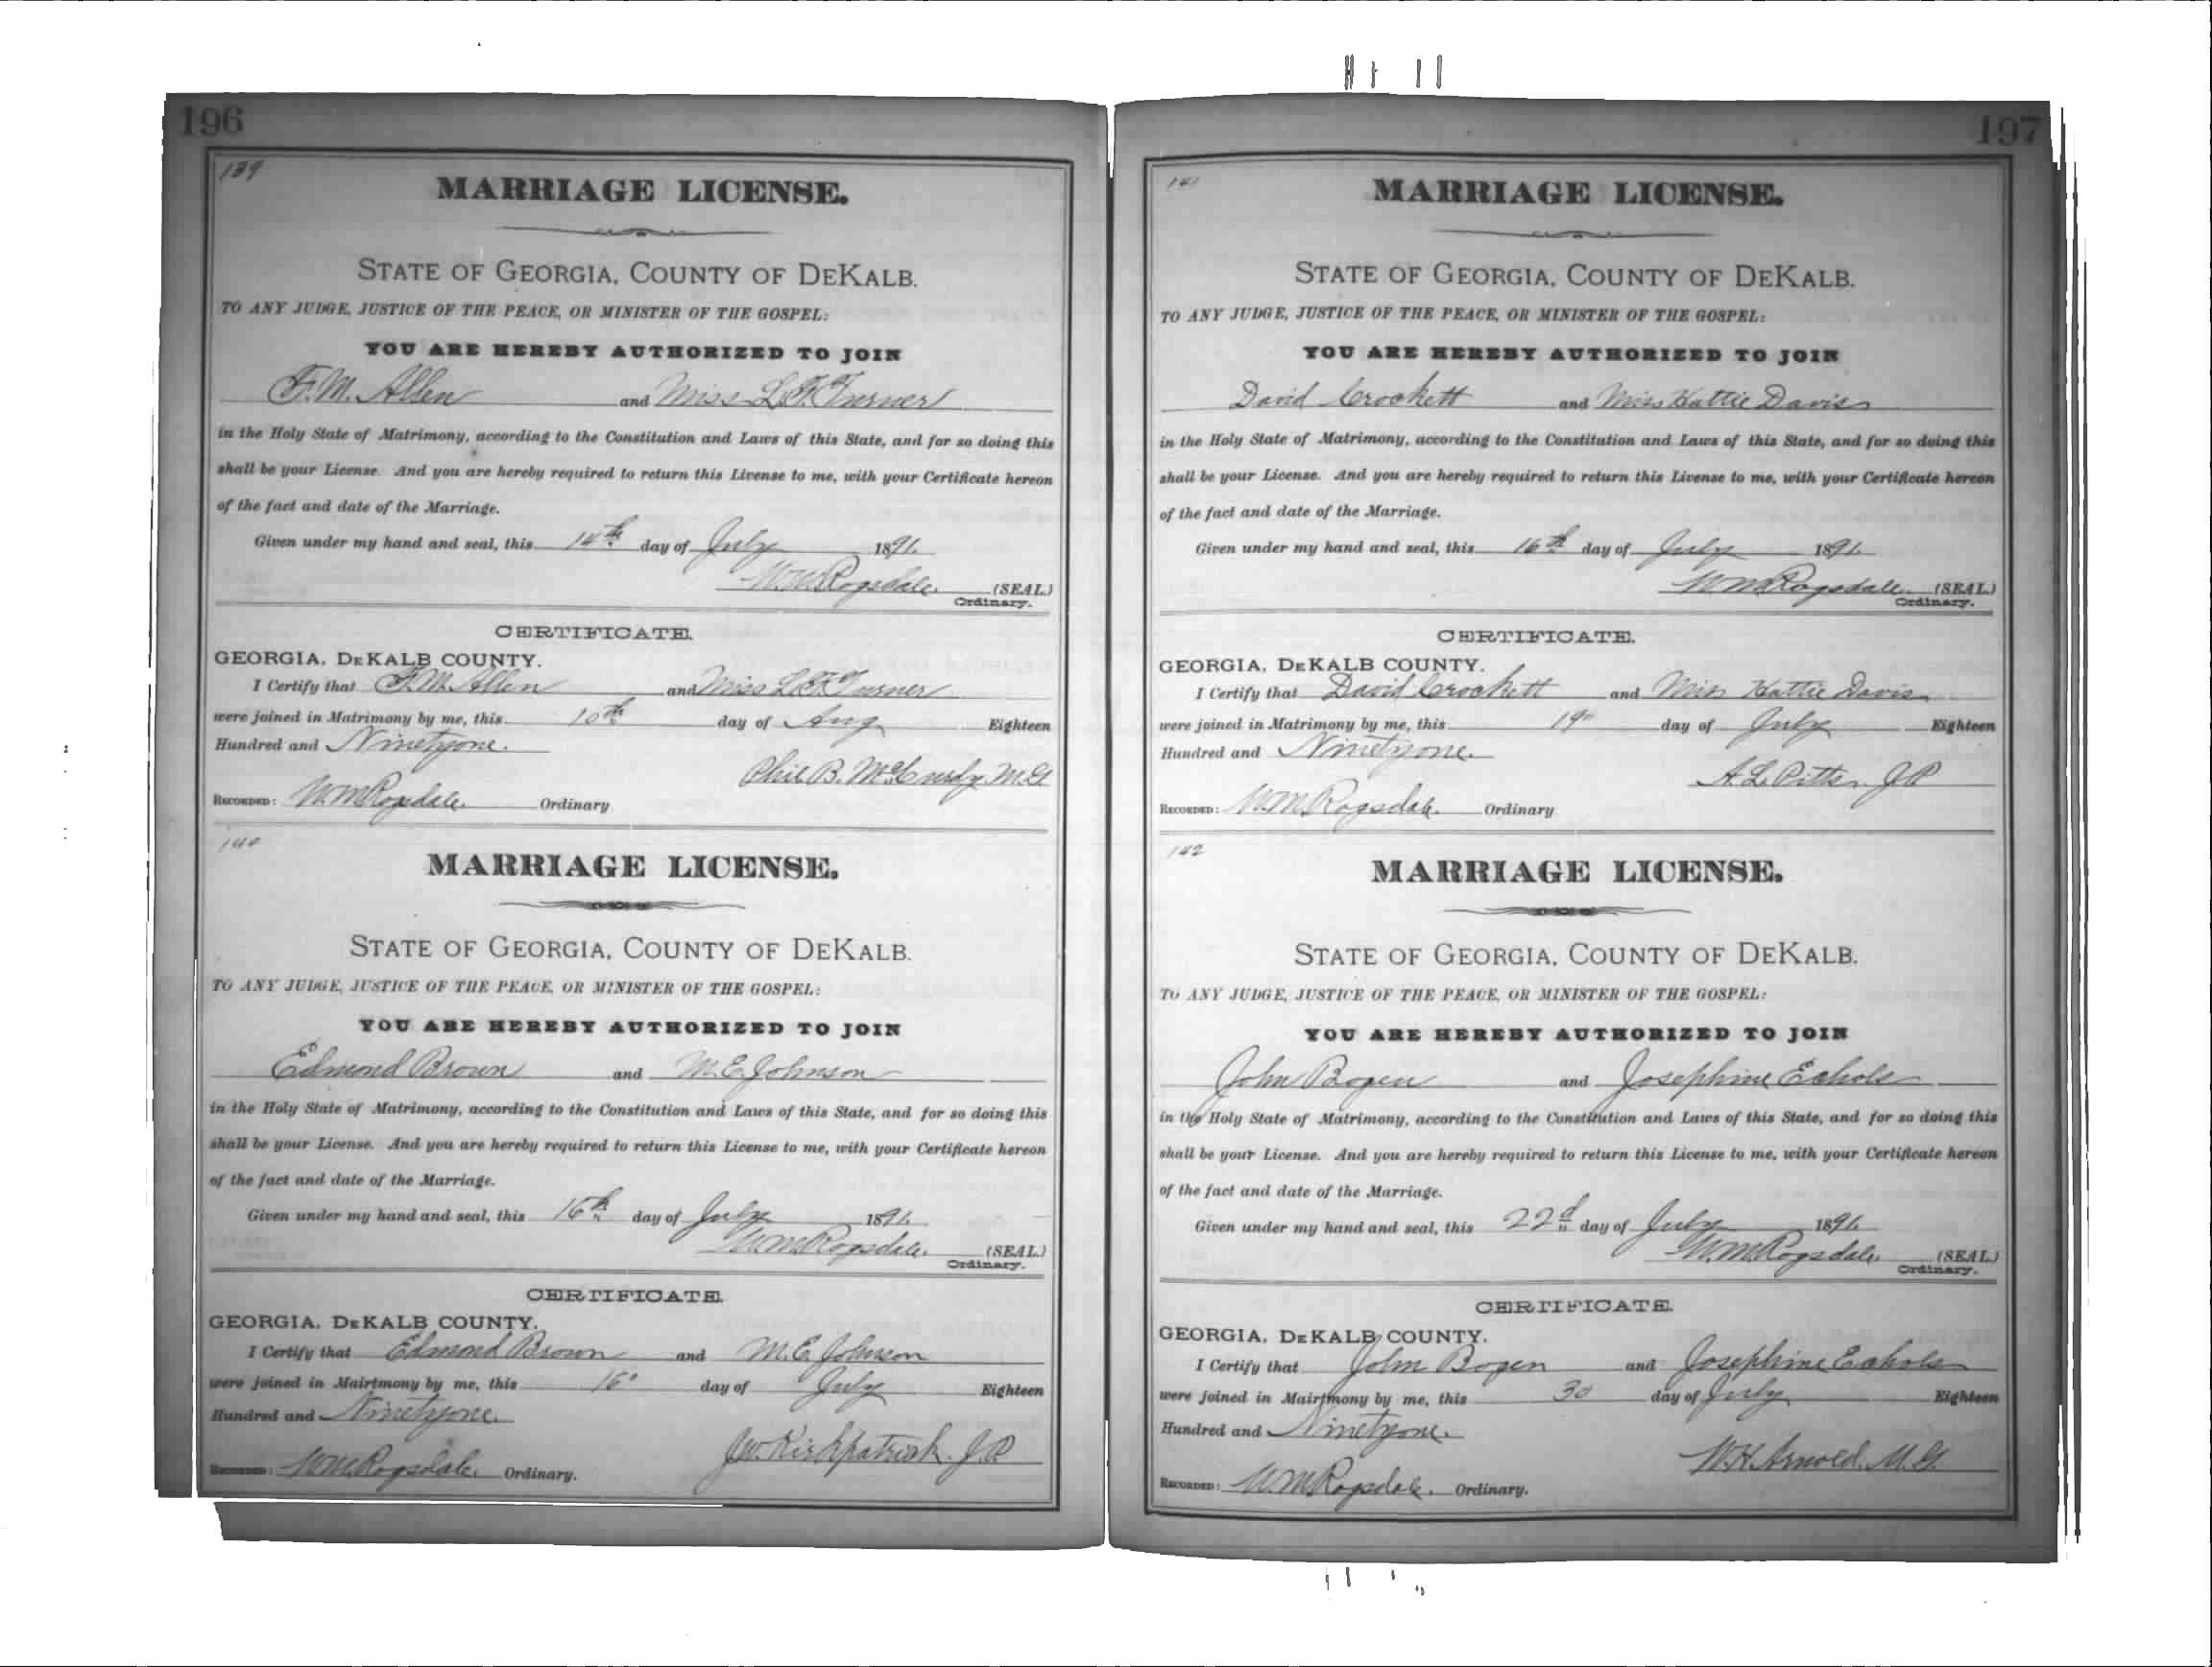 196
139
MARRIAGE LICENSE.
STATE OF GEORGIA, COUNTY OF DEKALB.
TO ANY JUDGE, JUSTICE OF THE PEACE, OR MINISTER OF THE GOSPEL:
YOU ARE HEREBY AUTHORIZED TO JOIN
F. M. Allen and Miss L. F. Turner
in the Holy State of Matrimony, according to the Constitution and Laws of this State, and for so doing this
shall be your License. And you are hereby required to return this License to me, with your Certificate hereon
of the fact and date of the Marriage.
Given under my hand and seal, this 14th day of July 1891.
W. M. Ragsdale. (SEAL)
Ordinary.
CERTIFICATE.
GEORGIA, DEKALB COUNTY.
I Certify that F. M. Allen and Miss L. F. Turner
were joined in Matrimony by me, this 10th day of Aug Eighteen
Hundred and Ninetyone.
Phil B. McCurdy. M.G
RECORDED: W. M. Ragsdale. Ordinary
140
MARRIAGE LICENSE.
STATE OF GEORGIA, COUNTY OF DEKALB.
TO ANY JUDGE, JUSTICE OF THE PEACE, OR MINISTER OF THE GOSPEL:
YOU ARE HEREBY AUTHORIZED TO JOIN
Edmond Brown and M. E. Johnson
in the Holy State of Matrimony, according to the Constitution and Laws of this State, and for so doing this
shall be your License. And you are hereby required to return this License to me, with your Certificate hereon
of the fact and date of the Marriage.
Given under my hand and seal, this 16th day of July 1891.
W. M. Ragsdale. (SEAL)
Ordinary.
CERTIFICATE.
GEORGIA, DEKALB COUNTY.
I Certify that Edmond Brown and M. E. Johnson
were joined in Mairtmony by me, this 16" day of July Eighteen
Hundred and Ninetyone.
J. W. Kirkpatrick. J. P
RECORDED: W. M. Ragsdale. Ordinary.
197
141
MARRIAGE LICENSE.
STATE OF GEORGIA, COUNTY OF DEKALB.
TO ANY JUDGE, JUSTICE OF THE PEACE, OR MINISTER OF THE GOSPEL:
YOU ARE HEREBY AUTHORIZED TO JOIN
David Crockett and Miss Hattie Davis
in the Holy State of Matrimony, according to the Constitution and Laws of this State, and for so doing this
shall be your License. And you are hereby required to return this License to me, with your Certificate hereon
of the fact and date of the Marriage.
Given under my hand and seal, this 16th day of July 1891.
W. M. Ragsdale. (SEAL)
Ordinary.
CERTIFICATE.
GEORGIA, DEKALB COUNTY.
I Certify that David Crockett and Miss Hattie Davis
were joined in Matrimony by me, this 19" day of July Eighteen
Hundred and Ninetyone.
A. L. Pitts. J P
RECORDED: W. M. Ragsdale. Ordinary
142
MARRIAGE LICENSE.
STATE OF GEORGIA, COUNTY OF DEKALB.
TO ANY JUDGE, JUSTICE OF THE PEACE, OR MINISTER OF THE GOSPEL:
YOU ARE HEREBY AUTHORIZED TO JOIN
John Bogen and Josephine Echols
in the Holy State of Matrimony, according to the Constitution and Laws of this State, and for so doing this
shall be your License. And you are hereby required to return this License to me, with your Certificate hereon
of the fact and date of the Marriage.
Given under my hand and seal, this 22d day of July 1891.
W. M. Ragsdale. (SEAL)
Ordinary.
CERTIFICATE.
GEORGIA, DEKALB COUNTY.
I Certify that John Bogen and Josephine Echols
were joined in Mairtmony by me, this 30 day of July Eighteen
Hundred and Ninetyone.
W. H. Arnold. M. G.
RECORDED: W. M. Ragsdale. Ordinary.